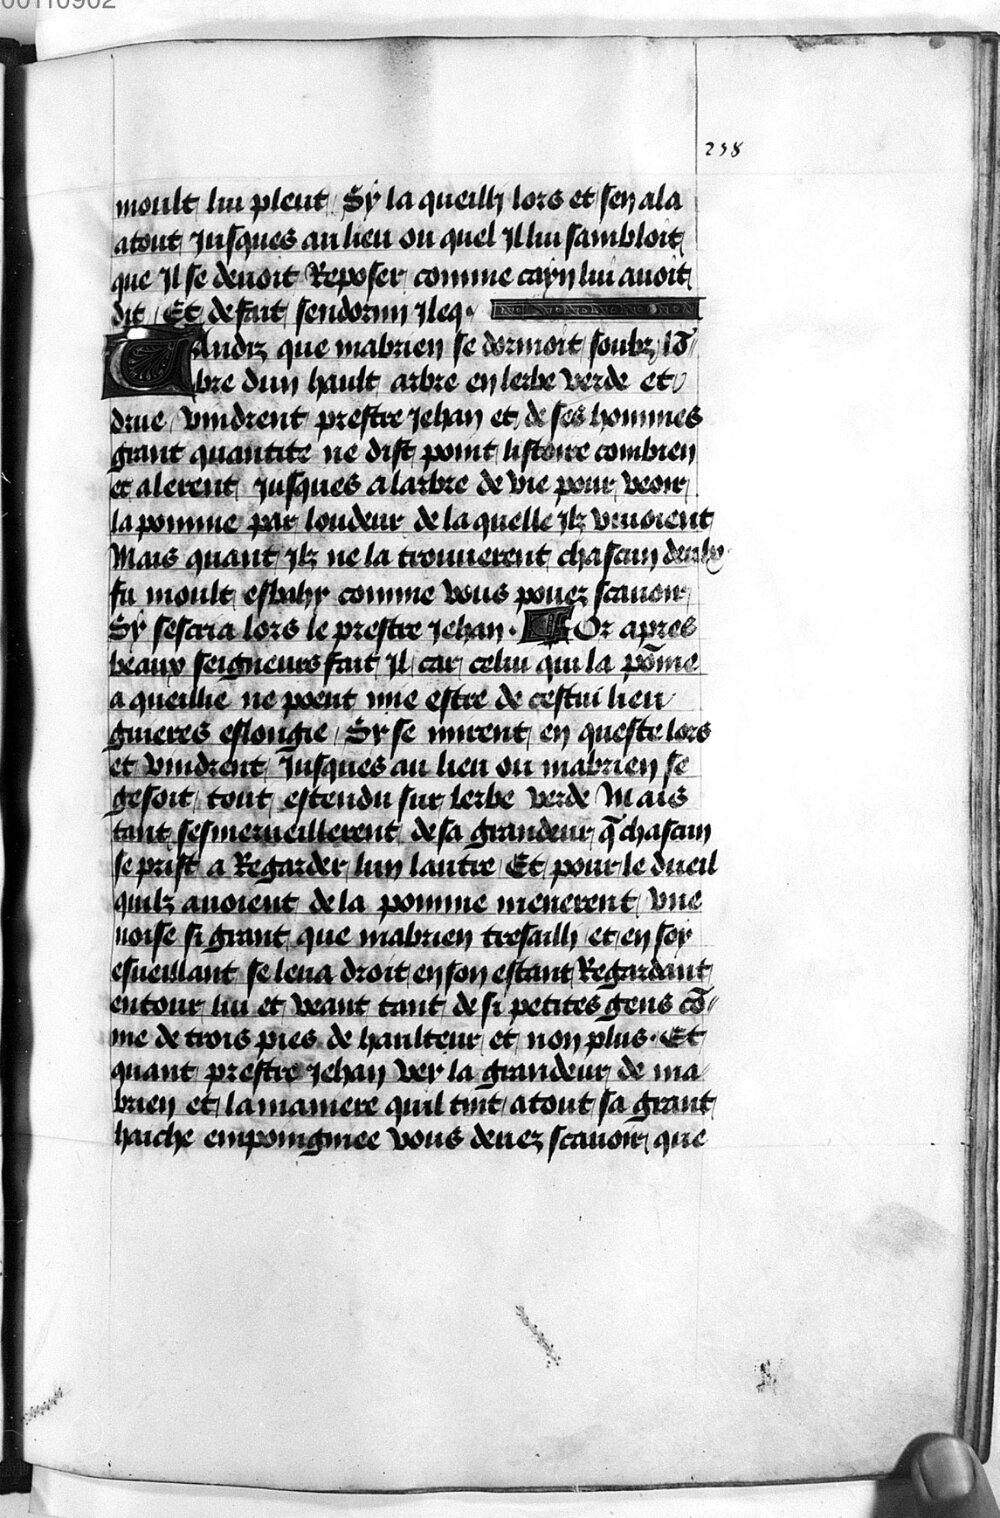 00110902
238
moult lui pleut / Sy la queilli lors et sen ala
atout Jusques au lieu ou quel Il lui sambloit
que Il se deuoit Reposer comme cayn lui auoit
dit / Et de fait sendormi Ileq.
Tandiz que mabrien se dormoit soubz lõ/
bre dun hault arbre en lerbe verde et
drue / vindrent prestre Jehan et de ses hommes
grant quantite ne dist point listoire combien
et alerent Jusques a larbre de vie pour veoir
la pomme par loudeur de la quelle Ilz viuoient
Mais quant Ilz ne la trouuerent chascun deulx
fu moult esbahy comme vous pouez scauoir
Sy sescria lors le prestre Jehan . Or apres
beaux seigneurs fait Il car celui qui la põme
a queillie ne poeut mie estre de cestui lieu
guieres eslongie / Sy se mirent en queste lors
et vindrent Jusques au lieu ou mabrien se
gesoit tout estendu sur lerbe verde Mais
tant sesmerueillerent de sa grandeur q̃ chascun
se prist a Regarder lun lautre Et pour le dueil
quilz auoient de la pomme menerent vne
noise si grant que mabrien tresailli et en soy
esueillant se leua droit en son estant Regardant
entour lui et veant tant de si petites gens cõ/
me de trois pies de haulteur et non plus . Et
quant prestre Jehan vey la grandeur de ma/
brien et la maniere quil tint atout sa grant
haiche empoingniee vous deuez scauoir que